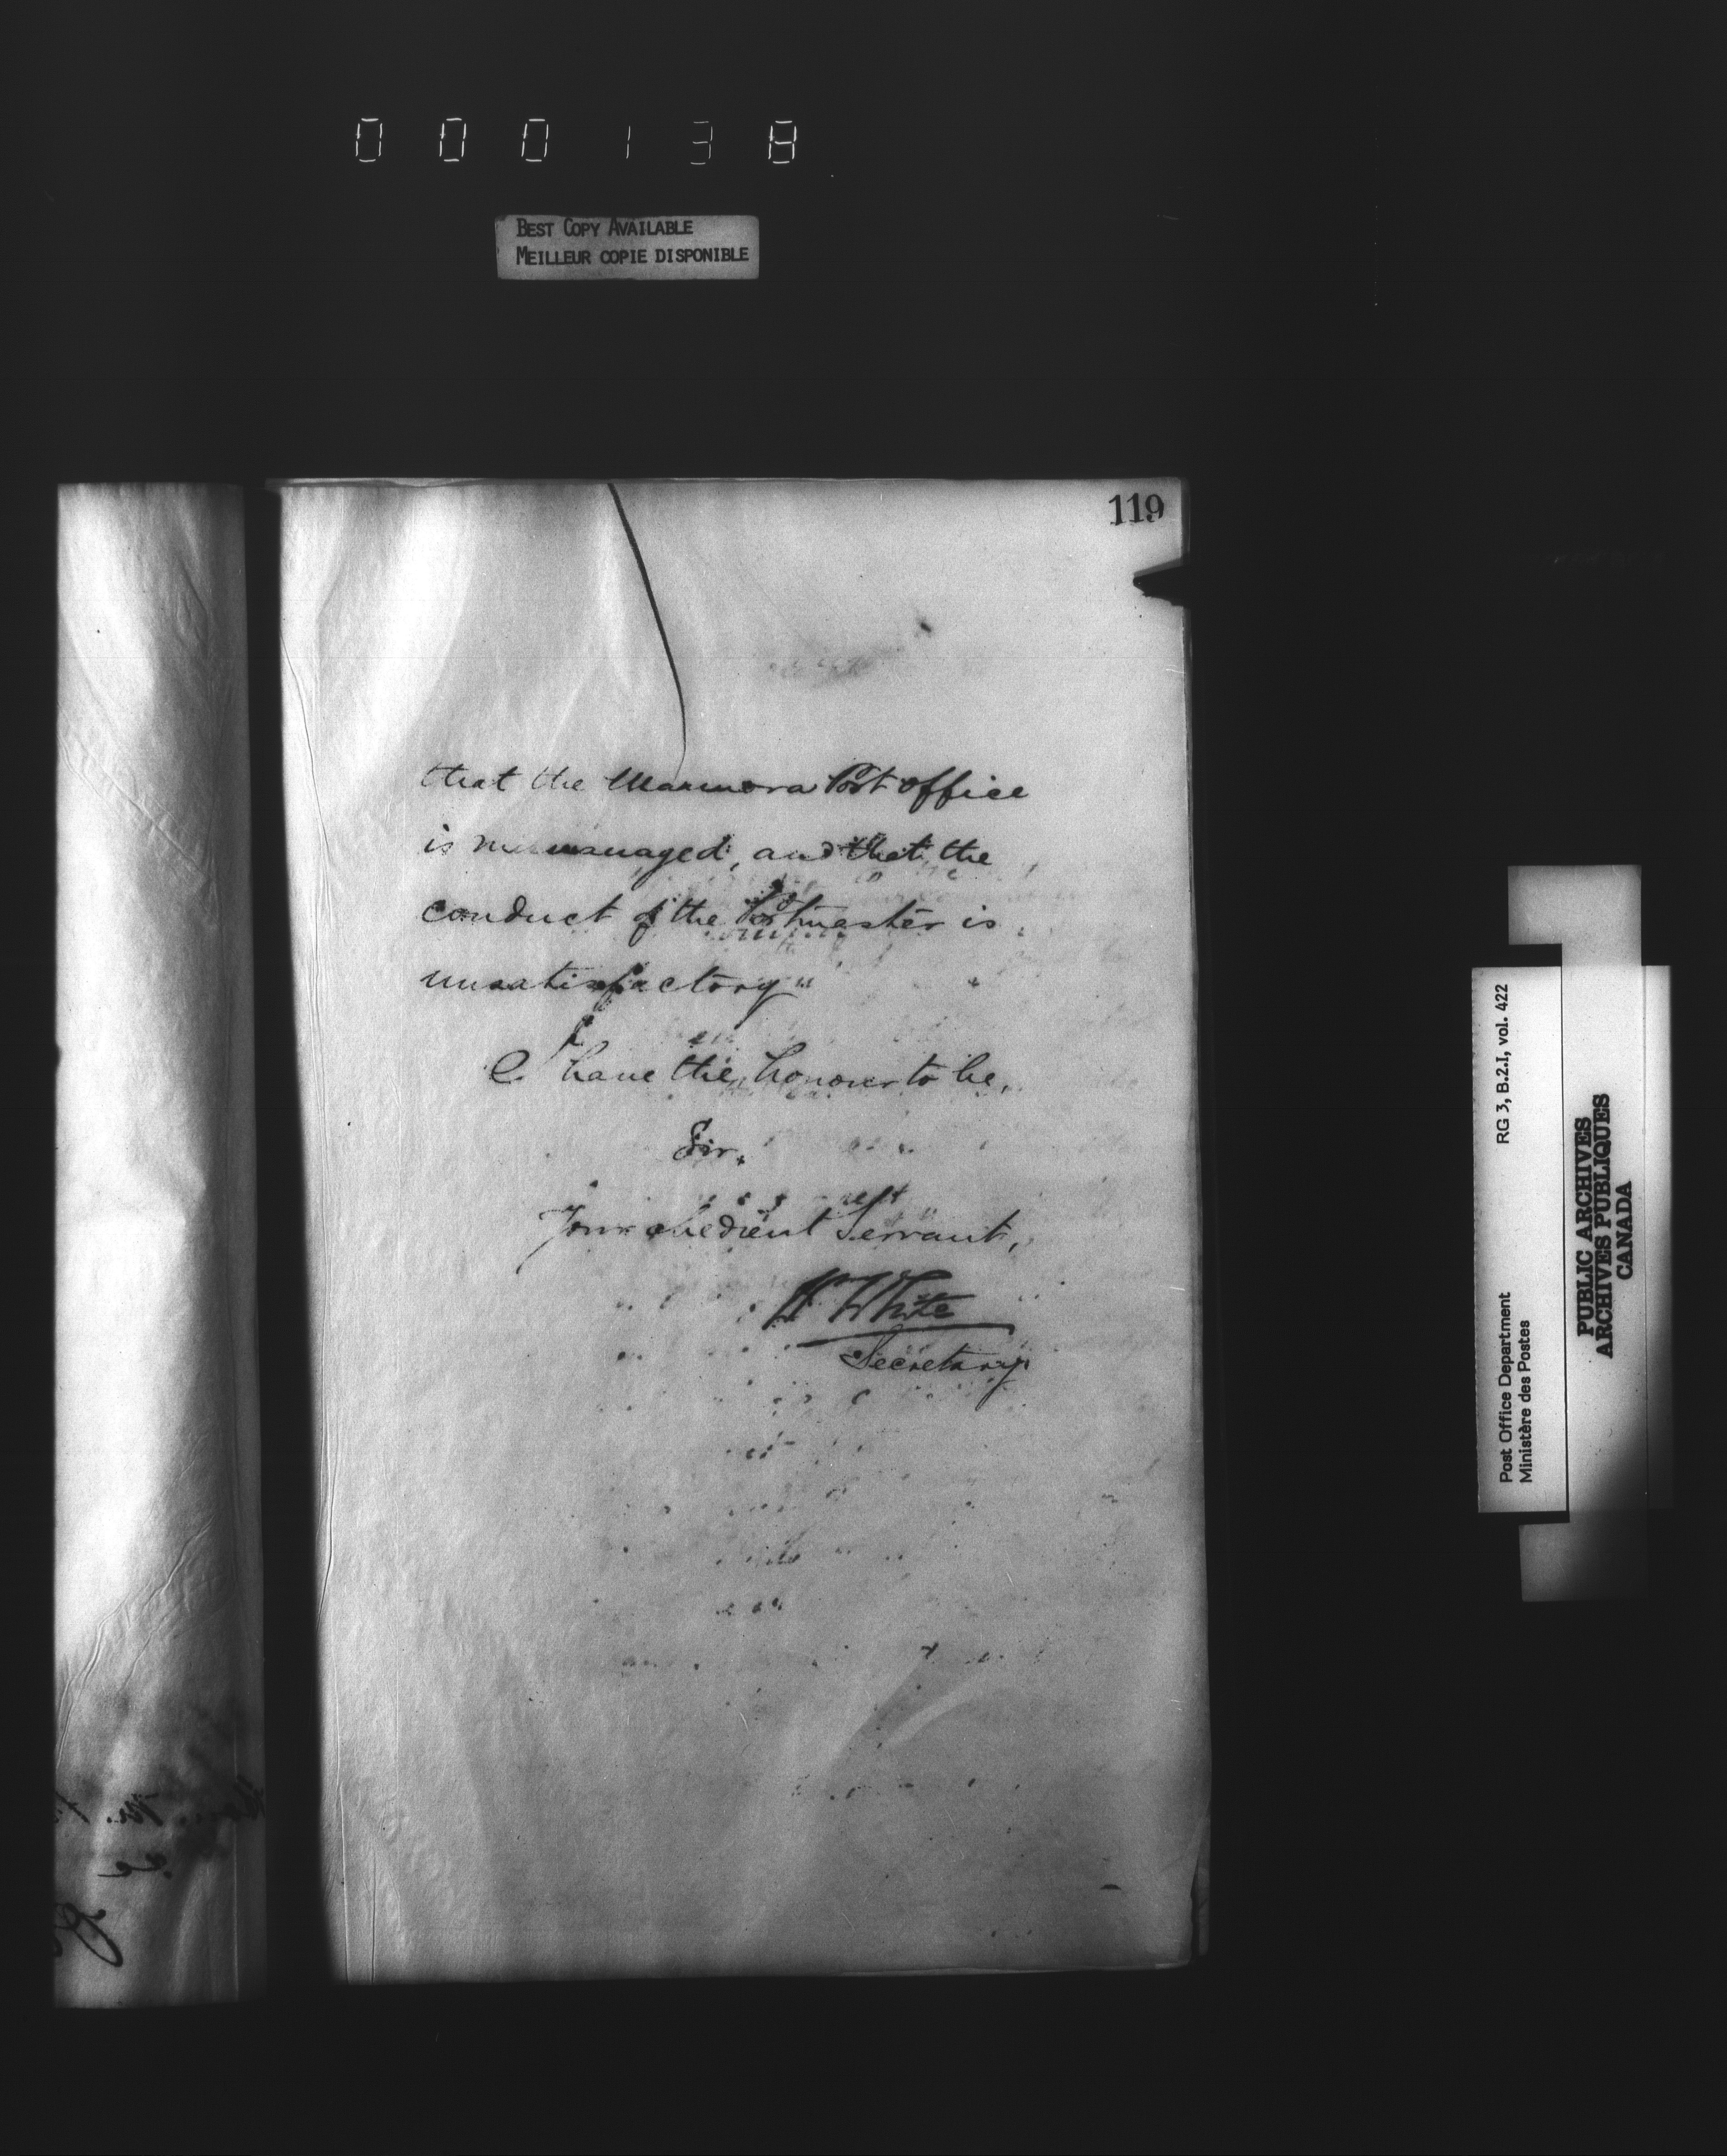 000138
BEST COPY AVAILABLE
MEILLEUR COPIE DISPONIBLE
119
that the Marmora Post Office
is mismanaged, and that the
conduct of the Postmaster is
unsatisfactory"
I have the honour to be,
Sir,
Your obedient Servant,
W White
Secretary
Post Office Department RG 3, B.2.I, vol. 422
Ministère des Postes
PUBLIC ARCHIVES
ARCHIVES PUBLIQUES
CANADA